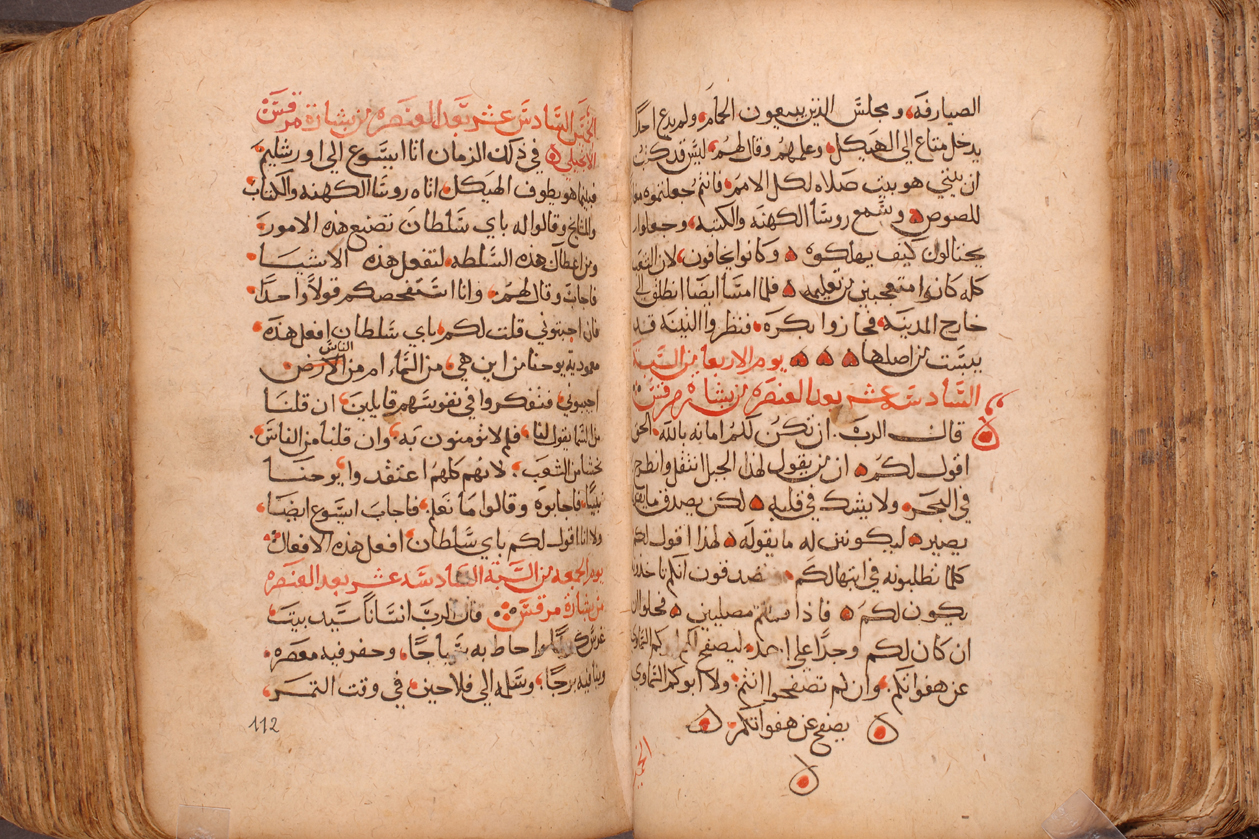 الصيارفه، ومجلس الذين يبيعون الحمام، ولم يدع احدًا
يدخل متاع الى الهيكل، وعلمهم وقال لهم، ليس قد كتب
ان بيتي هو بيت صلاه لكل الامم، فانتم جعلتموه
للصوص وسمع روسا الكهنه والكتبه، وجعلوا
يحتالون كيف يهلكوه وكانوا يخافون، لان الشعب
كله كانوا متعجبين من تعليمه فلما امسا ايضا انطلق الى
خارج المدينه، فجازوا بكره، فنظروا التينه قد
يبست من اصلها يوم الاربعا من السبة
السادسه عشر بعد العنصره من بشارة مرقس
قال الرب، ان تكن لكم امانه بالله، الحق
اقول لكم ان من يقول لهذا الجبل انتقل وانطرح
في البحر، ولا يشك في قلبه لكن يصدق
يصير، ليكونن له ما يقوله لهذا اقول لكم
كلما تطلبونه في ابتهالكم، تصدقون انكم
يكون لكم فاذا قمتم مصليين فحلوا ان
ان كان لكم وجدًا على احد، ليصفح لكم ابوكم السماوي
عن هفواتكم، وان لم تصفحوا انتم، ولا ابوكم السماوي
يصفح عن هفواتكم
الخميس السادس عشر بعد العنصره من بشارة مرقس
الانجيلي في ذلك الزمان اتا ايسوع الى اورشليم،
فبينما هو يطوف الهيكل، اتاه روسا الكهنه والكتاب
والمشايخ وقالوا له باي سلطان تصنع هذه الامور،
ومن اعطاك هذه السلطه، لتفعل هذه الاشيا،
فاجاب وقال لهم، وانا استفحصكم قولاً واحدًا،
فان اجبتوني قلت لكم، باي سلطان افعل هذه
الناس
معمودية يوحنا من اين هي، من السماء ام من الارض،
اجيبوني، فتفكروا في نفوسهم قايلين، ان قلنا
من السما يقول لنا، فلم لا تومنون به، وان قلنا من الناس،
نخشا من الشعب، لانهم كلهم اعتقدوا يوحنا
نبيًا، فاجابوه وقالوا ما نعلم، فاجاب ايسوع ايضًا،
ولا انا اقول لكم باي سلطان، افعل هذه الافعال
يوم الجمعه من السبة السادسه عشر بعد العنصره
من بشارة مرقس قال الرب انسانًا سيد بيت،
غرس كرمًا واحاط به سياجًا، وحفر فيه معصره،
وبنا فيه برجًا، وسلمه الى فلاحين، في وقت الثمر،
112